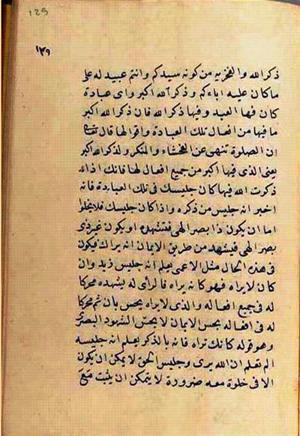 129
١٢٩
ذكر الله والفخر به من كونه سيدكم وانتم عبيد له على
ما كان عليه اباءكم وذكر الله اكبر واى عبادة
كان فيها العبد وفيها ذكر الله فان ذكر الله اكبر
ما فيها من افعال تلك العبادة واقوالها قال تع
ان الصلوة تنهى عن الفحشاء والمنكر ولذكر الله اكبر
يعنى الذى فيها اكبر من جميع افعالها فانك اذا
ذكرت الله فيها كان جليسك فى تلك العبادة فانه
اخبر انه جليس من ذكره واذا كان جليسك فلا يخلو
اما ان يكون ذا بصر الهى فتشهده او يكون غير ذى
بصر الهى فيشهده من طريق الايمان انه يراك فيكون
فى هذه الحال مثل الاعمى يعلم انه جليس زيد وان
كان لا يراه فهو كانه يراه فالرأى له يشهده محركا
له فى جميع افعاله والذى لا يراه يحس بان ثم محركا
له فى افعاله بحس الايمان لا بحس الشهود البصرى
وهو قوله كانك تراه فانه بالذكر يعلم انه جليسه
الم تعلم ان الله يرى وجليس الحق لا يمكن ان يكون
الا فى خلوة معه ضرورة لا يتمكن ان يثبت مع